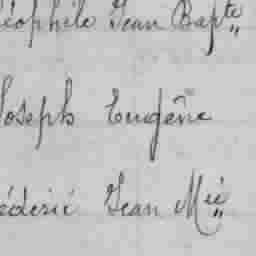 éophile Jean Bapte
Joseph Eugène
édéric Jean Mie